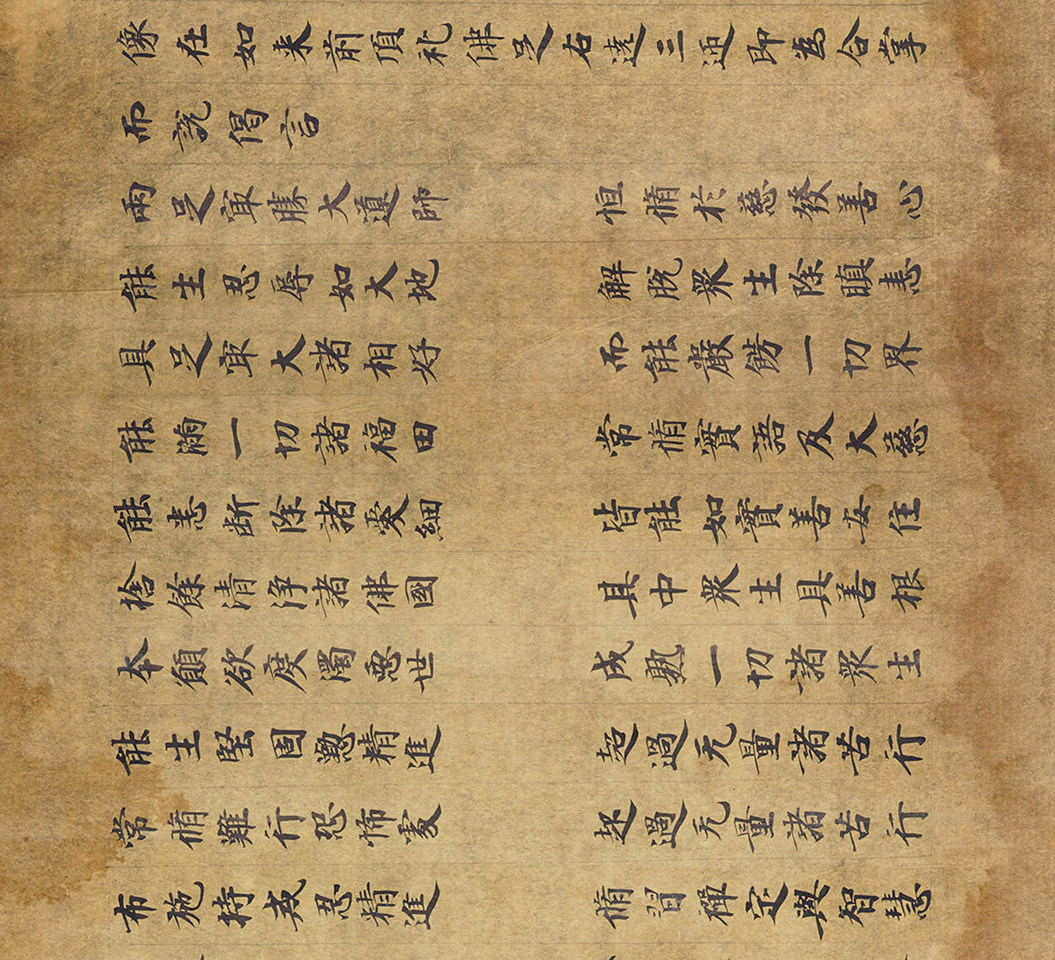 像在如来前頂礼佛足右遶三迊即為合掌
而說偈言
兩足冣勝大道師 恒脩於慈發善心
能生忍辱如大地 解脫衆生除瞋恚
具足冣大諸相好 而能嚴餝一切界
能滿一切諸福田 常脩實語及大慈
能悉断除諸愛細 皆能如實善安住
捨餘清淨諸佛國 其中衆生具善根
本願欲度濁惡世 成熟一切諸衆生
能生堅固懃精進 超過无量諸苦行
常脩難行恐怖處 超過无量諸苦行
布施持戒忍精進 脩習禪定與智慧